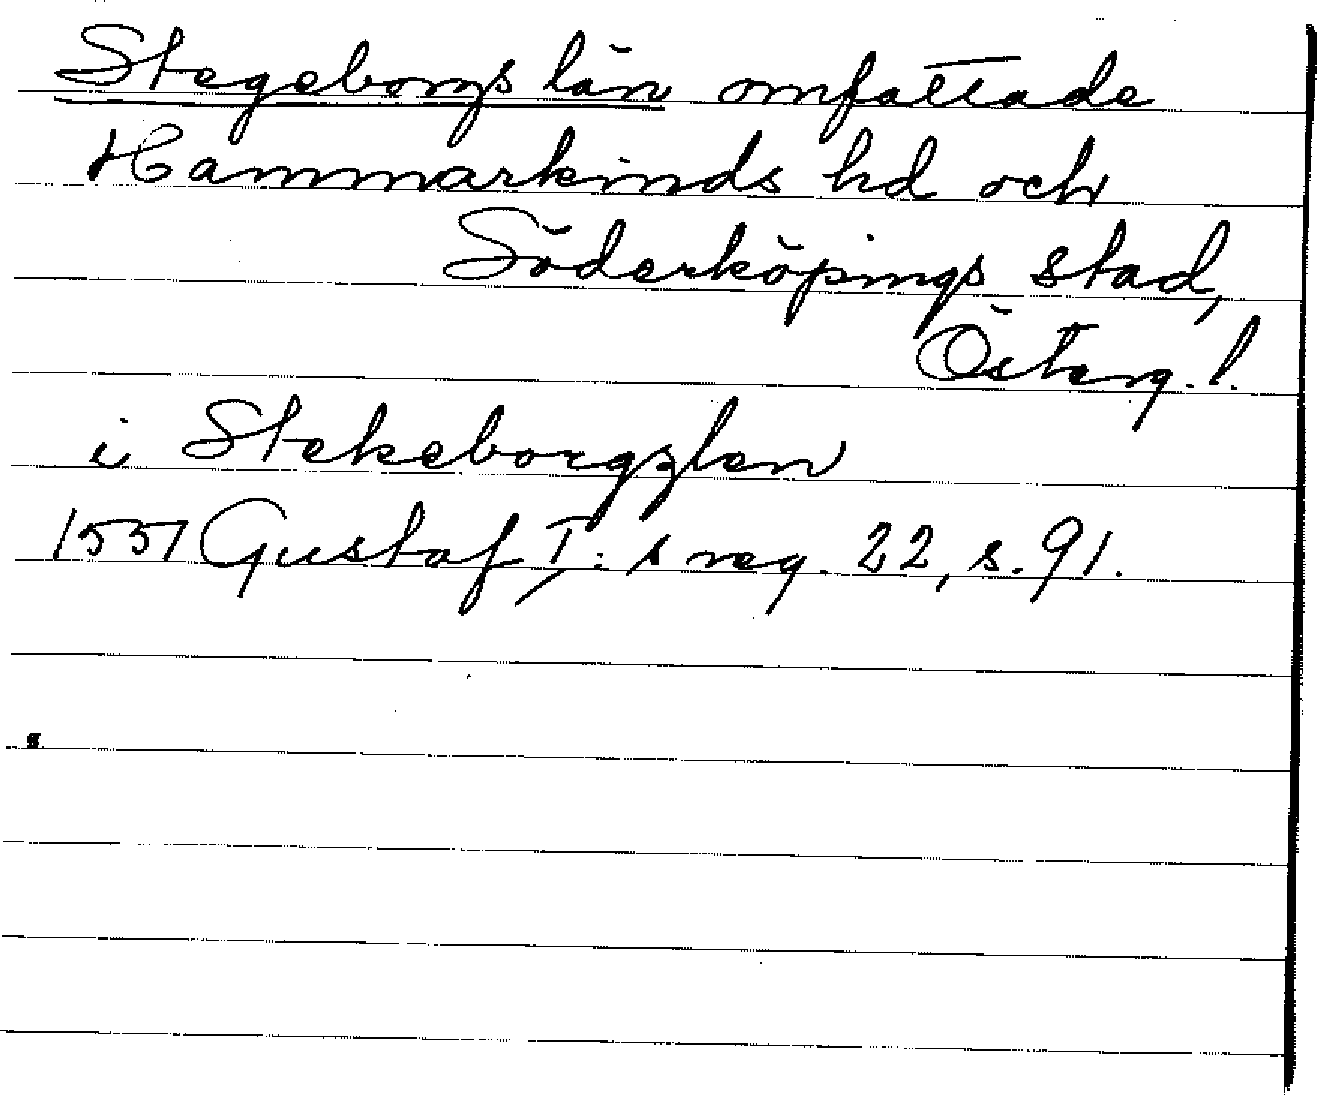 Stegeborgs län omfattade
Hammarkinds hd och
Söderköpings stad,
Österg. l.
i Stekeborgzlen
1551 Gustaf I: s reg. 22, s. 91.